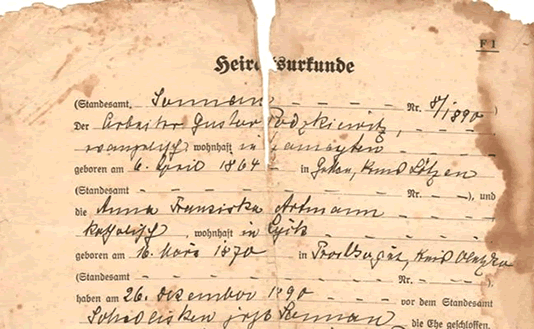 F 1
Heiratsurkunde
(Standesamt, Nr. 8/1890)
Der Arbeiter Gustav
wohnhaft in
geboren am 6. April 1864 in Kreis Lötzen
(Standesamt Nr. ), und
die Anna Franziska Artmann
katholisch, wohnhaft in Lyck
geboren am 16. März 1870 in Kreis Oletzko
(Standesamt Nr. ).
haben am 26. Dezember 1890 vor dem Standesamt
jetzt die Ehe geschlossen.